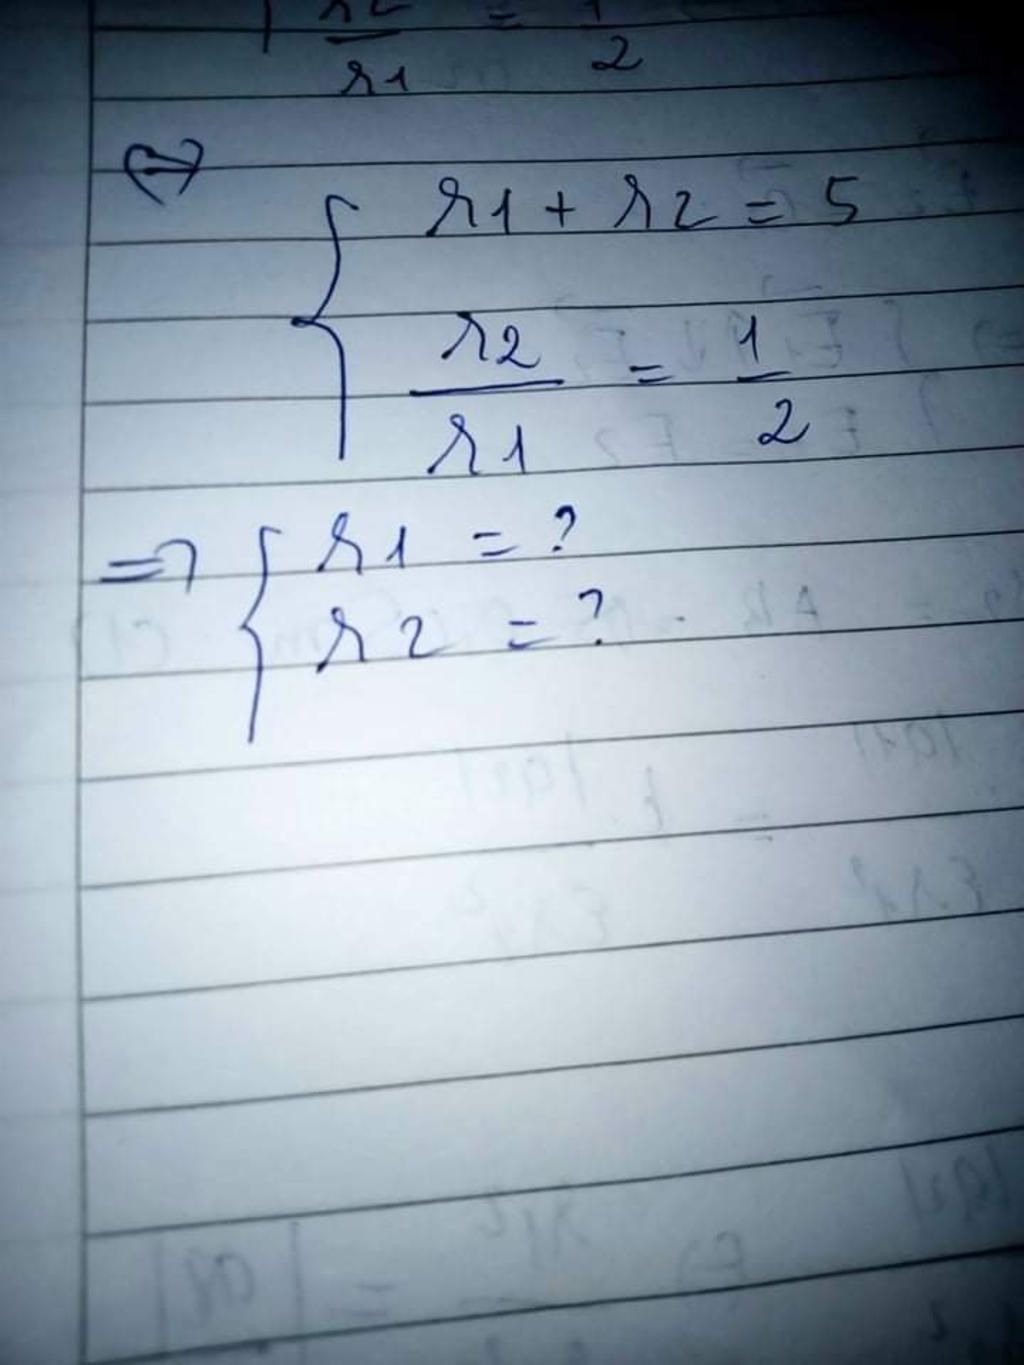 r2 = 1
r1 2
⇔
r1 + r2 = 5
r2 = 1
r1 2
=> r1 = ?
r2 = ?